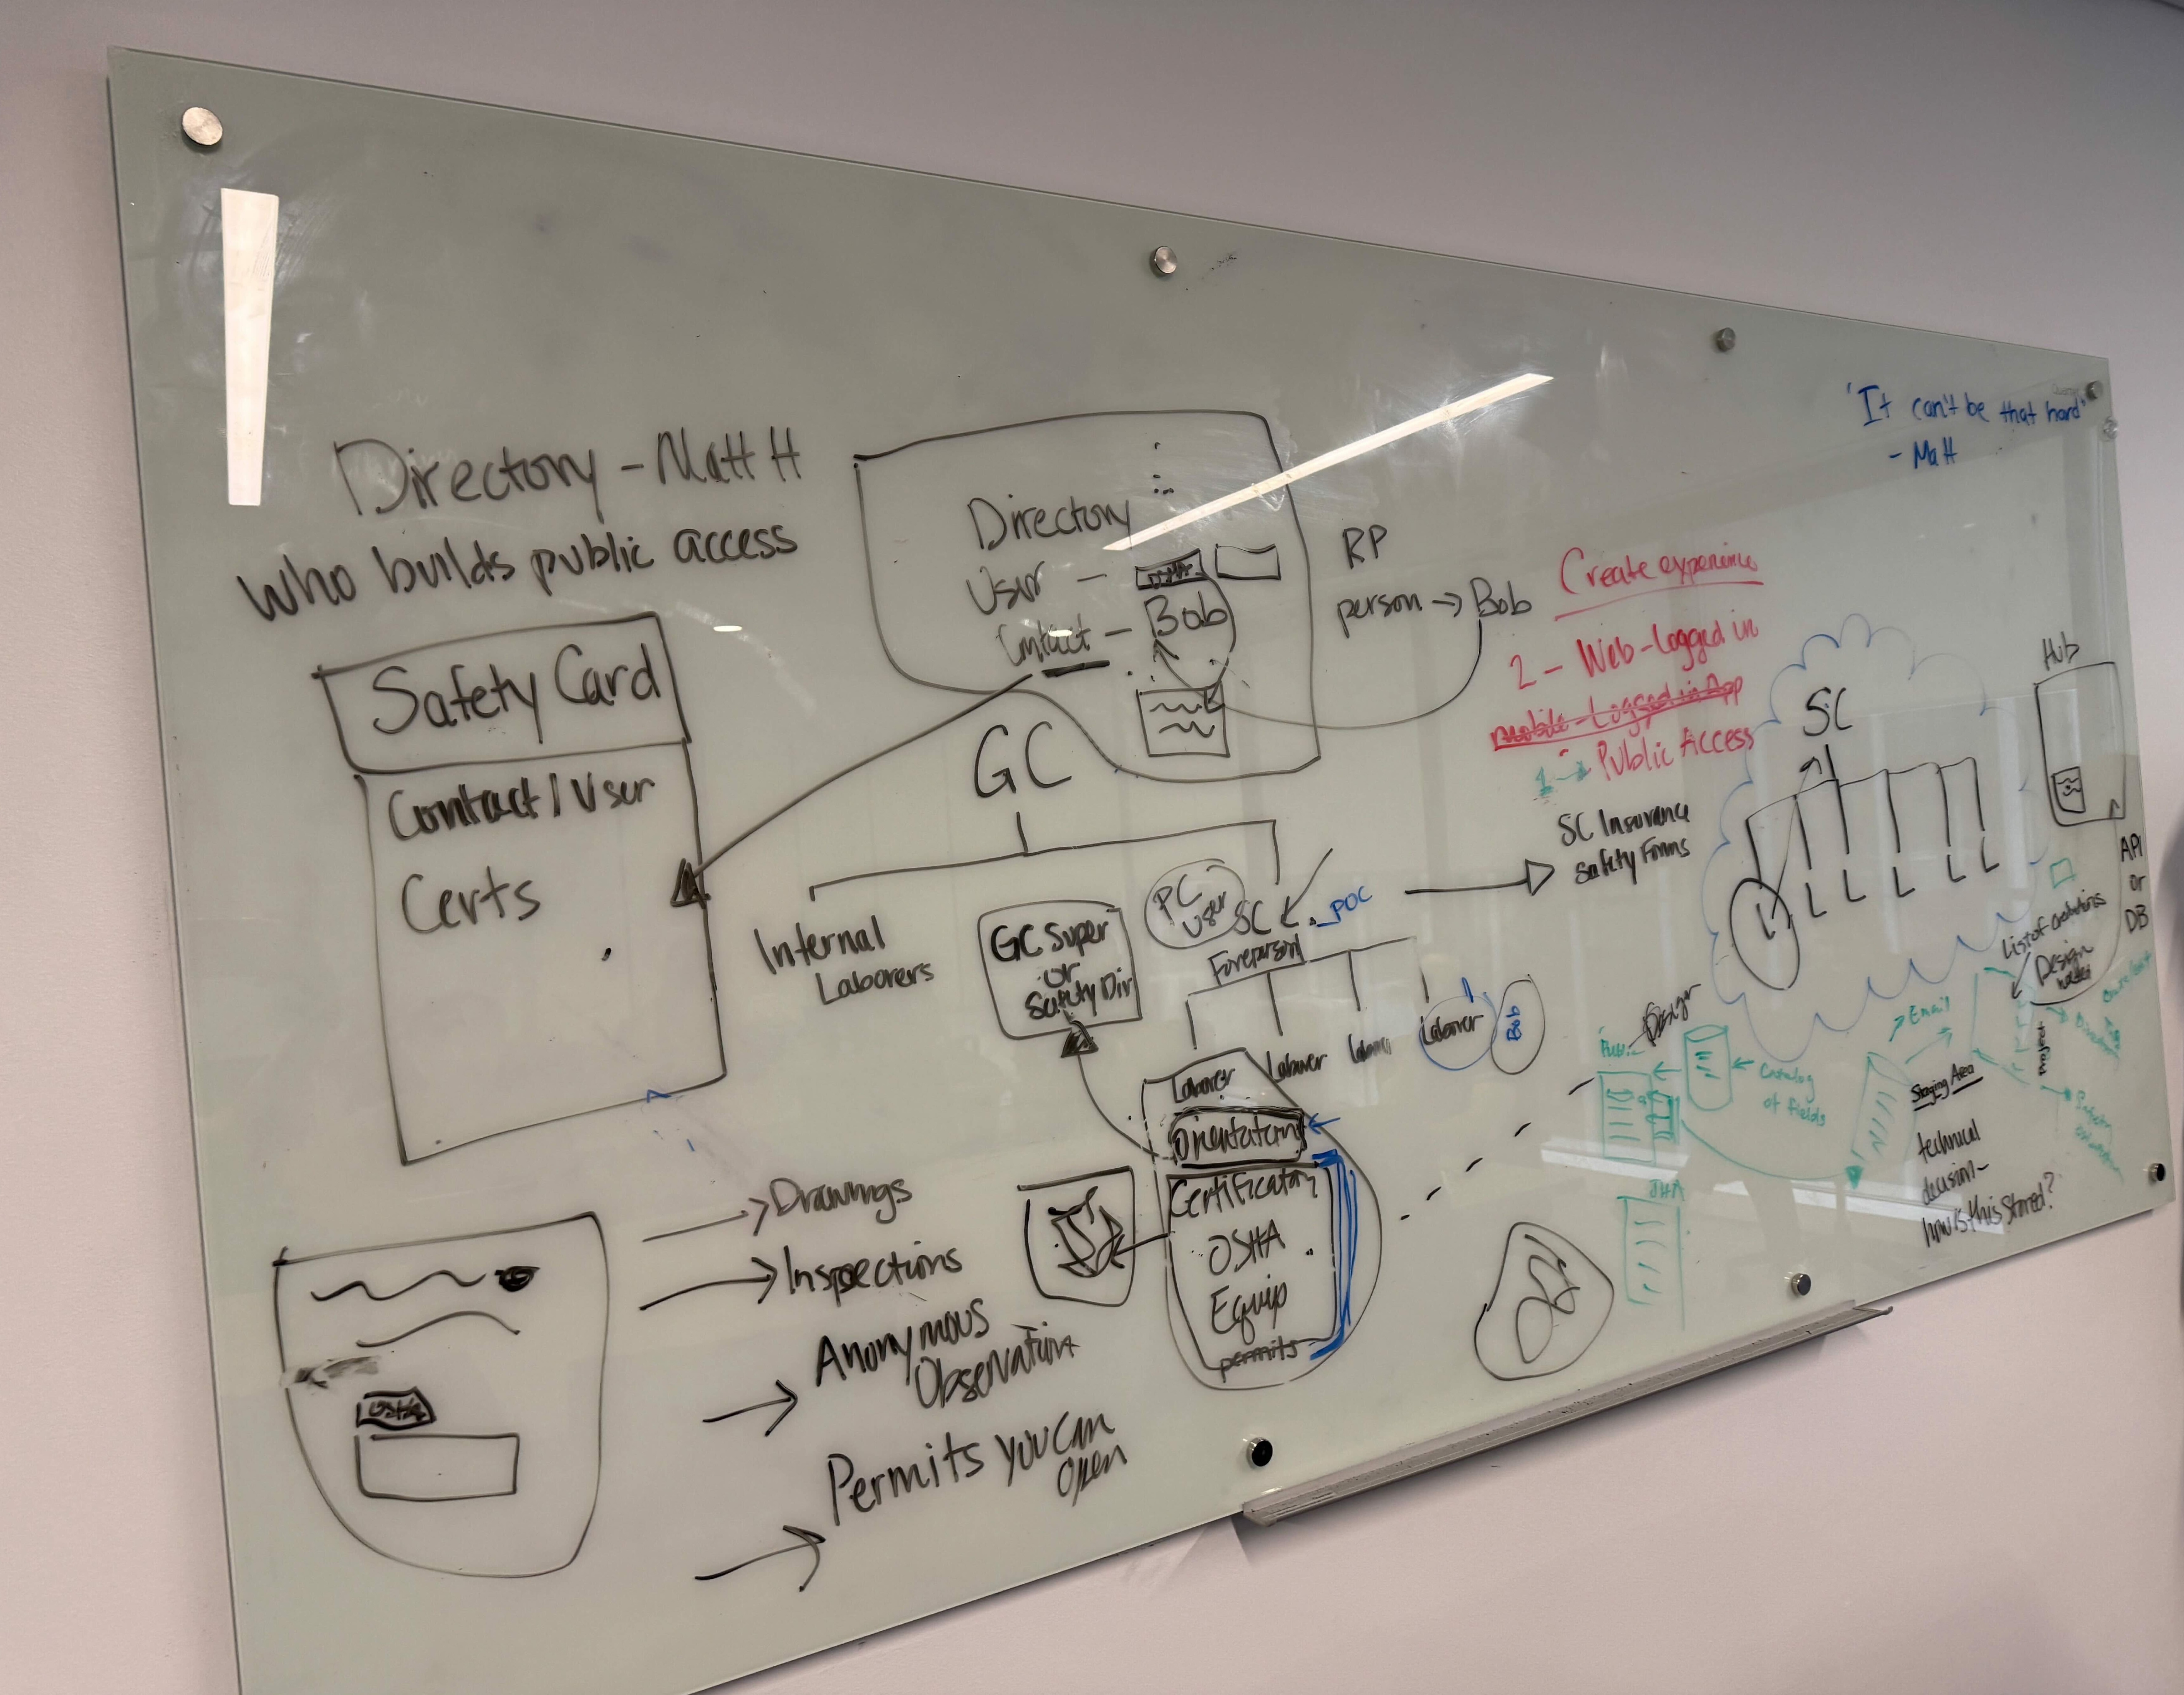 Directory - Matt H
Who builds public access
Safety Card
Contact / User
Certs
Directory
User -
Contact - Bob
RP
person → Bob
Create experience
2 - Web - Logged in
Mobile - Logged in App
1 → Public Access
"It can't be that hard"
- Matt
GC
Internal
Laborers
GC Super
or
Safety Dir
PC
User
SC
POC
Foreperson
Laborer
Laborer
Laborer
Bob
Laborer
Orientation
Certification
OSHA
Equip
permits
SC Insurance
Safety Forms
SC
L L L L L L
Hub
API
or
DB
→ Drawings
→ Inspections
→ Anonymous
Observation
→ Permits you can
open
OSHA
Design
Catalog
of Fields
Email
Staging Area
technical
decision -
how is this stored?
List of
Design
Project
JHA